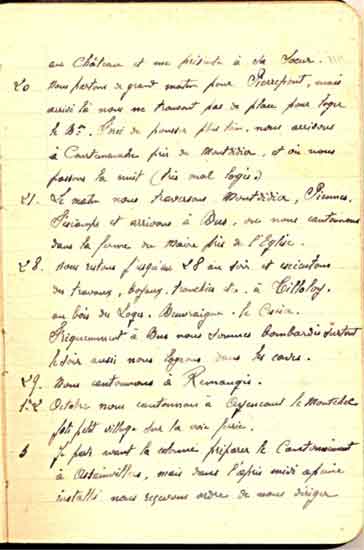 au Château et me présente à sa Soeur.
20 Nous partons de grand matin pour Pierrepont, mais
arrivé là nous ne trouvant pas de place pour loger
le Bon. Forcé de pousser plus loin, nous arrivons
à Courtemanche près de Montdidier, et où nous
passons la nuit (très mal logés)
21. Le matin nous traversons Montdidier, Piennes,
Fescamps et arrivons à Bus, où nous cantonnons
dans la ferme du Maire près de l'Eglise.
28. Nous restons jusqu'au 28 au soir et exécutons
des travaux, boyaux, tranchées etc. à Tilloloy.
au bois des Loges. Beuvraignes. le Cessier.
Fréquemment à Bus nous sommes bombardés surtout
le soir aussi nous logeons dans les caves.
29. Nous cantonnons à Remaugies.
1.2 Octobre nous cantonnons à Ayencourt le Monchel
joli petit village sur la voie ferrée.
3 Je pars avant la colonne préparer le Cantonnement
à Assainvillers, mais dans l'après midi à peine
installé nous recevons ordre de nous diriger